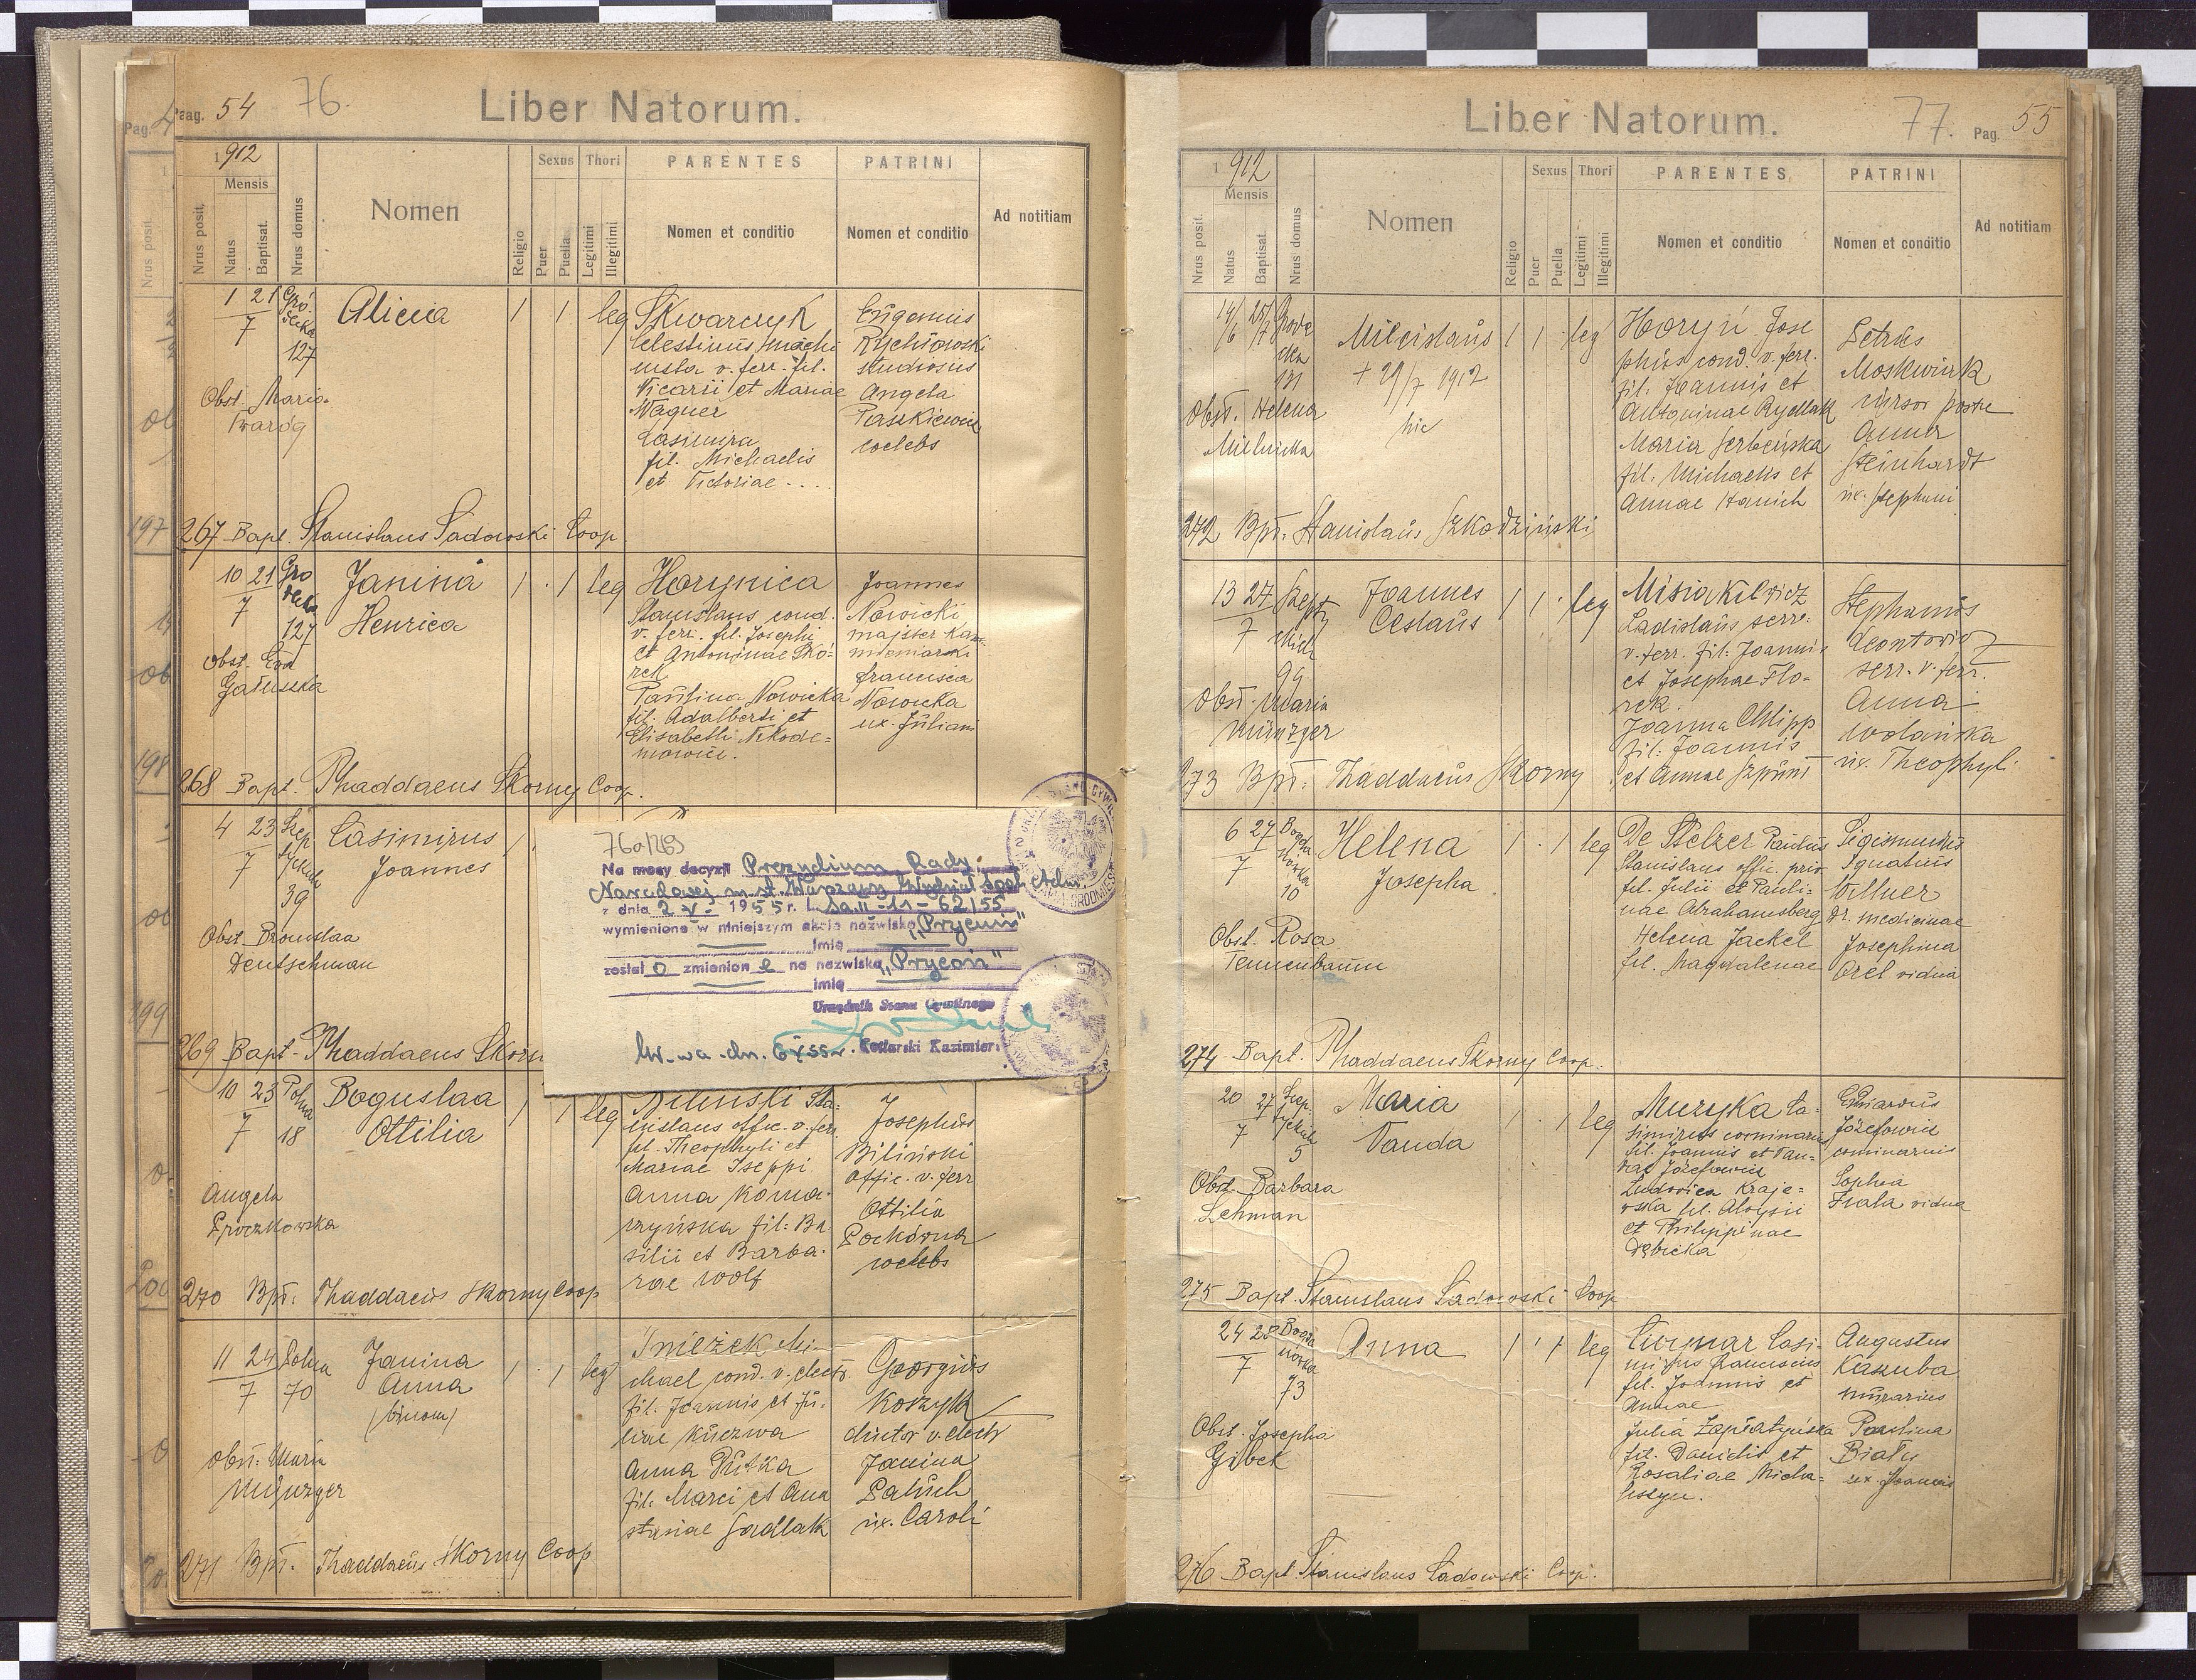 Pag. 54 76.
Liber Natorum.
1912
Mensis
Nrus posit.
Natus
Baptisat.
Nrus domus
Nomen
Religio
Sexus
Puer
Puella
Thori
Legitimi
Illegitimi
PARENTES
Nomen et conditio
PATRINI
Nomen et conditio
Ad notitiam
1 21
7
127
Alicia
1 1 leg
Skwarczyk
Celestinus machi
nista v. ferr. fil.
Vicarii et Mariae
Wagner
Casimira
fil. Michaelis
et Victoriae
Eugenius
Rychłowski
studiosus
Angela
Paszkiewicz
coelebs
Obst. Maria
Twaróg
267 Bapt. Stanislaus Sadowski Coop.
10 21
7
Gro
decka
127
Janina
Henrica
1 1 leg
Horynica
Stanislaus cond.
v. ferr. fil. Josephi
et Antoninae Sko-
rek
Paulina Nowicka
fil. Adalberti et
Elisabeth Nikode-
mowicz.
Joannes
Nowicki
majster ka
mieniarski
Francisca
Nowicka
ux. Juliani
Obst. Eva
Gałuszka
268 Bapt. Thaddaeus Skorny Coop.
4 23
7
Szep
tyckich
39
Casimirus
Joannes
Obst. Bronislaa
Deutschman
269 Bapt. Thaddaeus Skorn
76a/269
Na mocy decyzji Prezydium Rady
Narodowej m. st. Warszawy Wydział Społ. Adm.
z dnia 2-V- 1955 r. L. Sa.II-11-62/55
wymienione w niniejszym akcie nazwisko „Prycuń"
imię
został o zmienion e na nazwisko „Prycoń"
imię
Urzędnik Stanu Cywilnego
W-wa dn. 6 V 55 r. Kotlarski Kazimierz
10 23
7
Polna
18
Boguslaa
Ottilia
1 1 leg
Nilinski Sta-
nislaus offic. v. ferr
fil. Theophyli et
Mariae Iseppi
Anna Koma-
rzyńska fil. Ba-
silii et Barba-
rae Wolf
Josephus
Biliński
offic. v. ferr
Ottilia
Pochówna
coelebs
Angela
Proczkowska
270 Bpt. Thaddaeus Skorny Coop
11 24
7
Polna
70
Janina
Anna
(binom)
1 1 leg
Śnieżek Mi-
chael cond. v. electr.
fil. Joannis et Ju-
liae Kuczwa
Anna Dutka
fil. Marci et Ana
stasiae Sadlak
Georgius
Koszyk
ductor v. electr
Janina
Paluch
ux. Caroli
Obst. Maria
Münzger
271 Bpt. Thaddaeus Skorny Coop
Liber Natorum.
77. Pag. 55
1912
Mensis
Nrus posit.
Natus
Baptisat.
Nrus domus
Nomen
Religio
Sexus
Puer
Puella
Thori
Legitimi
Illegitimi
PARENTES
Nomen et conditio
PATRINI
Nomen et conditio
Ad notitiam
14/6 25/7
131
Miecislaus
+ 29/7 1912
hic
1 1 leg
Horyń Jose
phus cond. v. ferr.
fil. Joannis et
Antoninae Rydlak
Maria Serbeńska
fil. Michaelis et
Annae Hanich
Petrus
Moskwiak
cursor postae
Anna
Steinhardt
ux. Stephani
Obst. Helena
Mielnicka
272 Bpt. Stanislaus Szkodziński
13 27
7
Szept
yckich
99
Joannes
Ceslaus
1 1 leg
Misiakiewicz
Ladislaus serv.
v. ferr. fil. Joannis
et Josephae Flo-
rek
Joanna Chlipp
fil. Joannis
et Annae Szprint
Stephanus
Leontowicz
serv. v. ferr.
Anna
Wolańska
ux. Theophyli
Obst. Maria
Münzger
273 Bpt. Thaddaeus Skorny
6 27
7
Bogda
nówka
10
Helena
Josepha
1 1 leg
De Stelzer Paulus
Stanislaus offic. priv.
fil. Julii et Pauli-
nae Abrahamsberg
Helena Jackel
fil. Magdalenae
Sigismundus
Ignatius
Willner
Dr. medicinae
Josephina
Orel vidua
Obst. Rosa
Tennenbaum
274 Bapt. Thaddaeus Skorny Coop.
20 27
7
Szep
tyckich
5
Maria
Vanda
1 1 leg
Muzyka Ca-
simirus cominarius
fil. Joannis et Pau-
lae Józefowicz
Ludovica Kraje-
wska fil. Aloysii
et Philippinae
Dębicka
Eduardus
Józefowicz
cominarius
Sophia
Fiala vidua
Obst. Barbara
Lehman
275 Bapt. Stanislaus Sadowski Coop
24 28
7
Bogda
nówka
73
Anna
1 1 leg
Casi-
mirus
fil. Joannis et
Annae
Julia Zapłatyńska
fil. Danielis et
Rosaliae Micha-
liszyn.
Augustus
Kaszuba
murarius
Paulina
Biały
ux. Joannis
Obst. Josepha
Gibek
276 Bapt. Stanislaus Sadowski Coop.